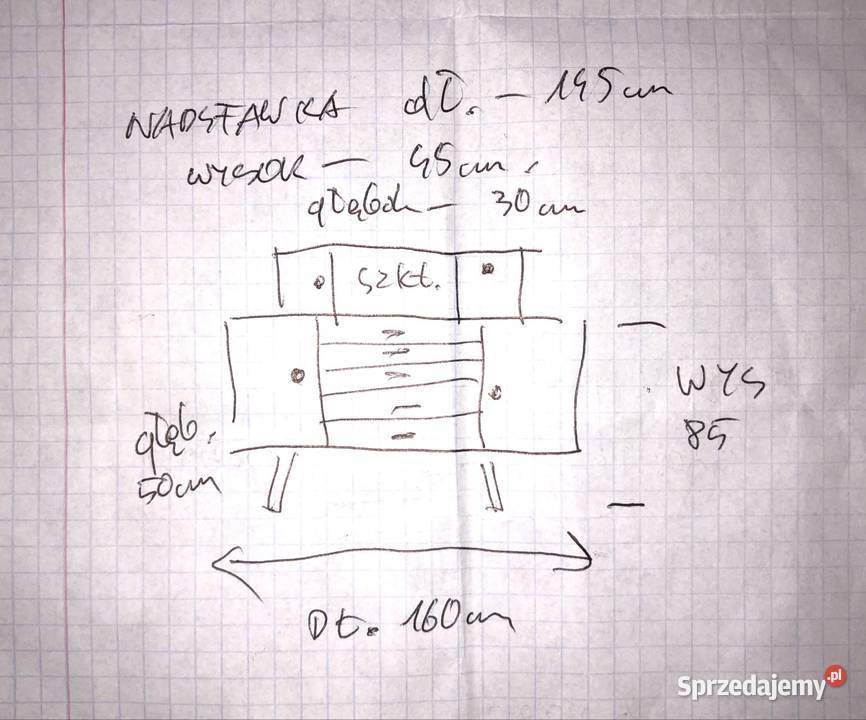 NADSTAWKA dł. - 145cm
WYSOK - 45cm.
głębok - 30cm
szkł.
WYS
85
głęb.
50cm
Dł. 160cm
Sprzedajemy.pl